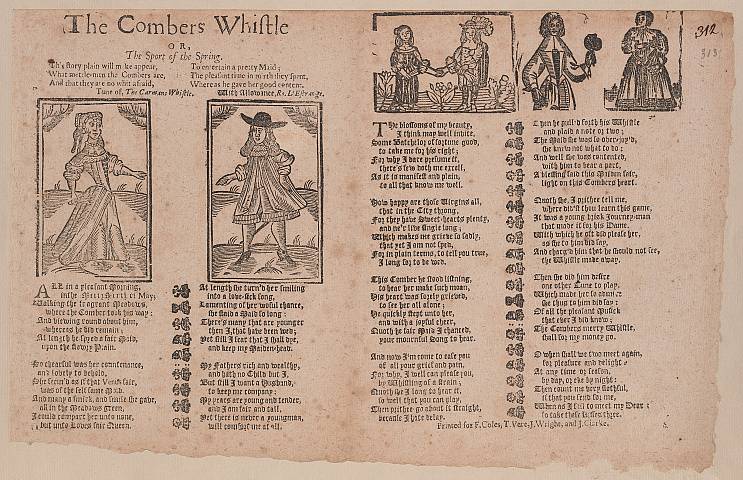 The Combers Whistle
OR,
The Sport of the Spring.
This story plain will make appear,
What mettle-men the Combers are,
And that they are no whit afraid,
To entertain a pretty Maid;
The pleasant time in mirth they spent,
Whereas he gave her good content.
Tune of, The Carmans Whistle. With Allowance, Ro. L'Estrange.
ALL in a pleasant Morning,
in the Merry Month of May,
Walking the fragrant Meadows,
where the Comber took his way:
And viewing round about him,
whereas he did remain;
At length he spyed a fair Maid,
upon the flowry Plain.
So chearful was her countenance,
and lovely to behold,
She seem'd as if that Venus fair,
was of the self same Mold.
And many a smirk, and smile she gave,
all in the Meadows green,
I could compare her unto none,
but unto Loves fair Queen.
At length she turn'd her smiling
into a love-sick song,
Lamenting of her woful chance,
she staid a Maid so long:
There's many that are younger
then I, that have been wed;
Yet still I fear that I shall dye,
and keep my Maiden-head.
My Fathers rich and wealthy,
and hath no Child but I,
But still I want a Husband,
to keep me company:
My years are young and tender,
and I am fair and tall,
Yet there is never a young-man,
will comfort me at all.
312
313
The blossoms of my beauty,
I think may well invite,
Some Batchelor of fortune good,
to take me for his right;
For why I dare presume it,
there's few doth me excell,
As it is manifest and plain,
to all that know me well.
How happy are those Virgins all,
that in the City throng,
For they have Sweet-hearts plenty,
and ne'r live single long;
Which makes me grieve so sadly,
that yet I am not sped,
For in plain terms, to tell you true,
I long for to be wed.
This Comber he stood listning,
to hear her make such moan,
His heart was sorely grieved,
to see her all alone:
He quickly stept unto her,
and with a joyful cheer,
Quoth he fair Maid I chanced,
your mournful Song to hear.
And now I'm come to ease you
of all your grief and pain,
For why, I well can please you,
by Whistling of a strain;
Quoth she I long to hear it,
so well that you can play,
Then prithee go about it straight,
because I hate delay.
Then he pull'd forth his Whistle
and plaid a note or two;
The Maid she was so overjoy'd,
she knew not what to do:
And well she was contented,
with him to bear a part,
A blessing said this Maiden fair,
light on this Combers heart.
Quoth she, I prithee tell me,
where didst thou learn this game,
It was a young brisk Journey-man
that made it for his Dame.
With which he oft did please her,
as she to him did say,
And charg'd him that he should not see,
the Whistle made away.
Then she did him desire
one other Tune to play,
Which made her so admire
she thus to him did say:
Of all the pleasant Musick
that ever I did know;
The Combers merry Whistle,
shall for my money go.
O when shall we two meet again,
for pleasure and delight
At any time or season,
by day, or eke by night:
Then count me very faithful,
if that you send for me,
When as I fail to meet my Dear:
Printed for F. Coles, T. Vere, J. Wright, and J. Clarke.